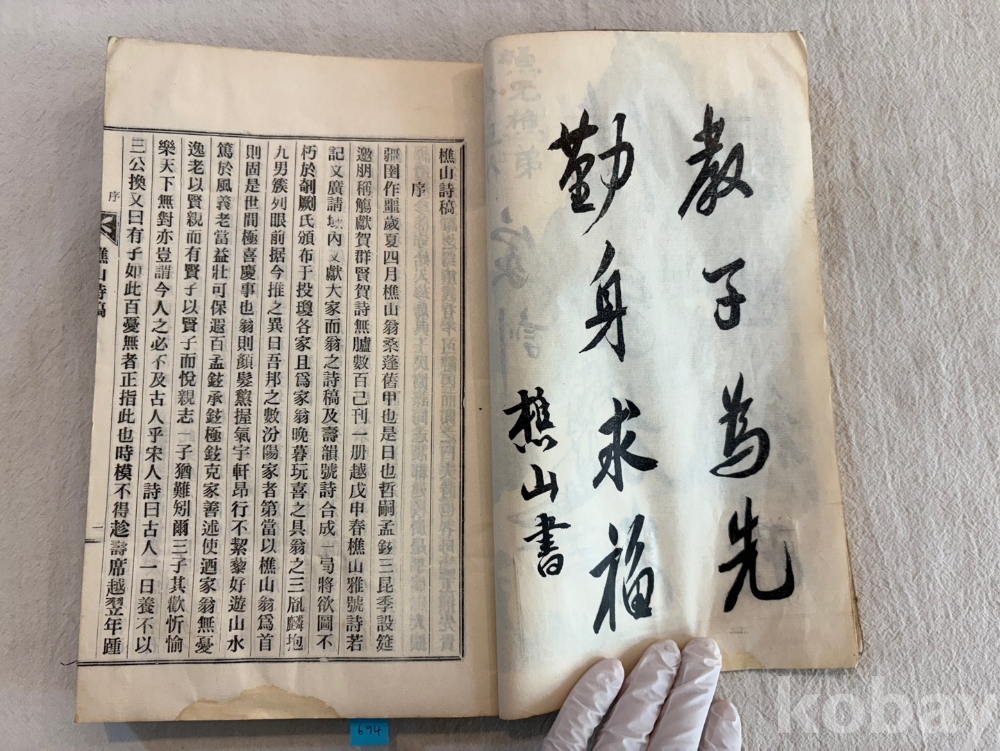 教子為先
勤身求福
樵山書
樵山詩稿
序
彊圉作噩歲夏四月樵山翁桑蓬舊甲也是日也哲嗣孟鉉三昆季設筵
邀朋稱觴獻賀群賢賀詩無臚數百已刊一册越戊申春樵山雅號詩若
記文廣請域內文獻大家而翁之詩稿及壽韻號詩合成一局將欲圖不
朽於剞劂氏頒布于投瓊各家且爲家翁晚暮玩喜之具翁之三胤麟抱
九男簇列眼前据今推之異日吾邦之數汾陽家者第當以樵山翁爲首
則固是世間極喜慶事也翁則顏髮鬒握氣宇軒昂行不絜藜好遊山水
篤於風義老當益壯可保遐百孟鉉承鉉極鉉克家善述使迺家翁無憂
逸老以賢親而有賢子以賢子而悅親志一子猶難矧爾三子其歡忻愉
樂天下無對亦豈謂今人之必不及古人乎宋人詩曰古人一日養不以
三公換又曰有子如此百憂無者正指此也時模不得趁壽席越翌年踵
序
樵山詩稿
一
694
kobay